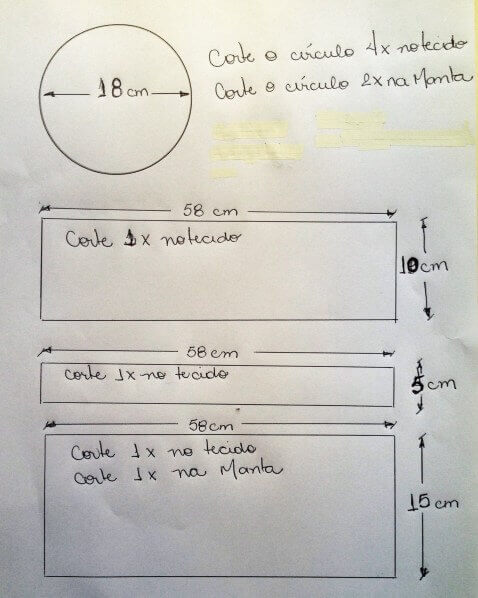 Corte o círculo 4x no tecido
18cm
Corte o círculo 2x na Manta
58 cm
Corte 1x no tecido
10cm
58cm
corte 1x no tecido
5cm
58cm
Corte 1x no tecido
Corte 1x na Manta
15cm